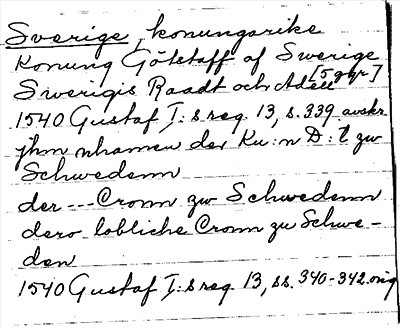 Sverige, konungarike
Konung Götstaff af Swerige
Swerigis Raadt och Adell [5 ggr]
1540 Gustaf I:s reg. 13, s. 339 avskr.
jhm nhamen der Ku:n D:t zw
Schwedenn
der --- Cronn zw Schwedenn
dero lobliche Cronn zu Schwe-
den
1540 Gustaf I:s reg. 13, ss. 340-342 orig